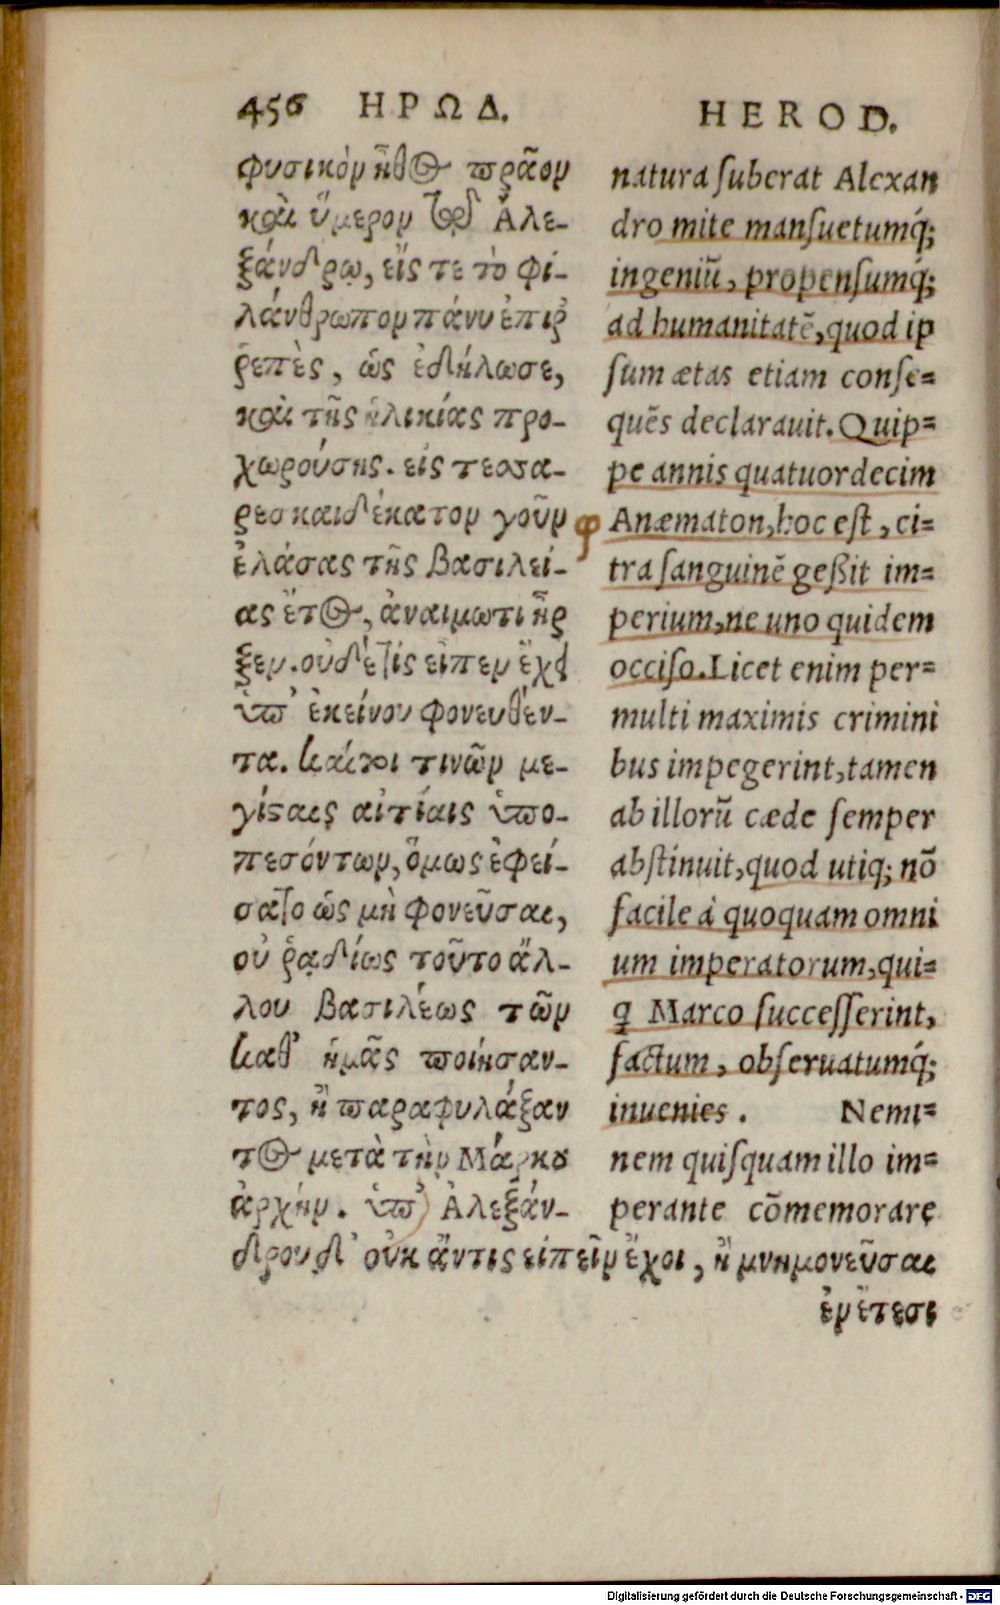 456 ΗΡΩΔ.
φυσικὸν ἦθος πρᾶον
καὶ ἥμερον τῷ δ' Ἀλε-
ξάνδρῳ, εἴς τε τὸ φι-
λάνθρωπον πάνυ ἐπιρ
ρεπὲς, ὡς ἐδήλωσε,
καὶ τῆς ἡλικίας προ-
χωρούσης. εἰς τεσσα-
ρεσκαιδέκατον γοῦν
ἐλάσας τῆς βασιλεί-
ας ἔτος, ἀναιμωτὶ ἦρ
ξεν. οὐδ' ἔτις εἰπεῖν ἔχει
ὑπ' ἐκείνου φονευθέν-
τα. καίτοι τινῶν με-
γίσταις αἰτίαις ὑπο-
πεσόντων, ὅμως ἐφεί-
σατο ὡς μὴ φονεῦσαι,
οὐ ῥᾳδίως τοῦτο ἄλ-
λου βασιλέως τῶν
καθ' ἡμᾶς ποιήσαν-
τος, ἢ παραφυλάξαν
τος μετὰ τὴν Μάρκου
ἀρχήν. ὑπ' Ἀλεξάν-
δρου δ' οὐκ ἄν τις εἰπεῖν ἔχοι, ἢ μνημονεῦσαι
ἐν ἔτεσι
HEROD.
natura suberat Alexan
dro mite mansuetumq́;
ingeniũ, propensumq́;
ad humanitatẽ, quod ip
sum ætas etiam conse=
quẽs declarauit. Quip=
pe annis quatuordecim
Anæmaton, hoc est, ci=
tra sanguinẽ geßit im=
perium, ne uno quidem
occiso. Licet enim per=
multi maximis crimini
bus impegerint, tamen
ab illorũ cæde semper
abstinuit, quod utiq; nõ
facile à quoquam omni
um imperatorum, qui=
q̃ Marco successerint,
factum, obseruatumq́;
inuenies. Nemi=
nem quisquam illo im=
perante cõmemorare
Digitalisierung gefördert durch die Deutsche Forschungsgemeinschaft - DFG